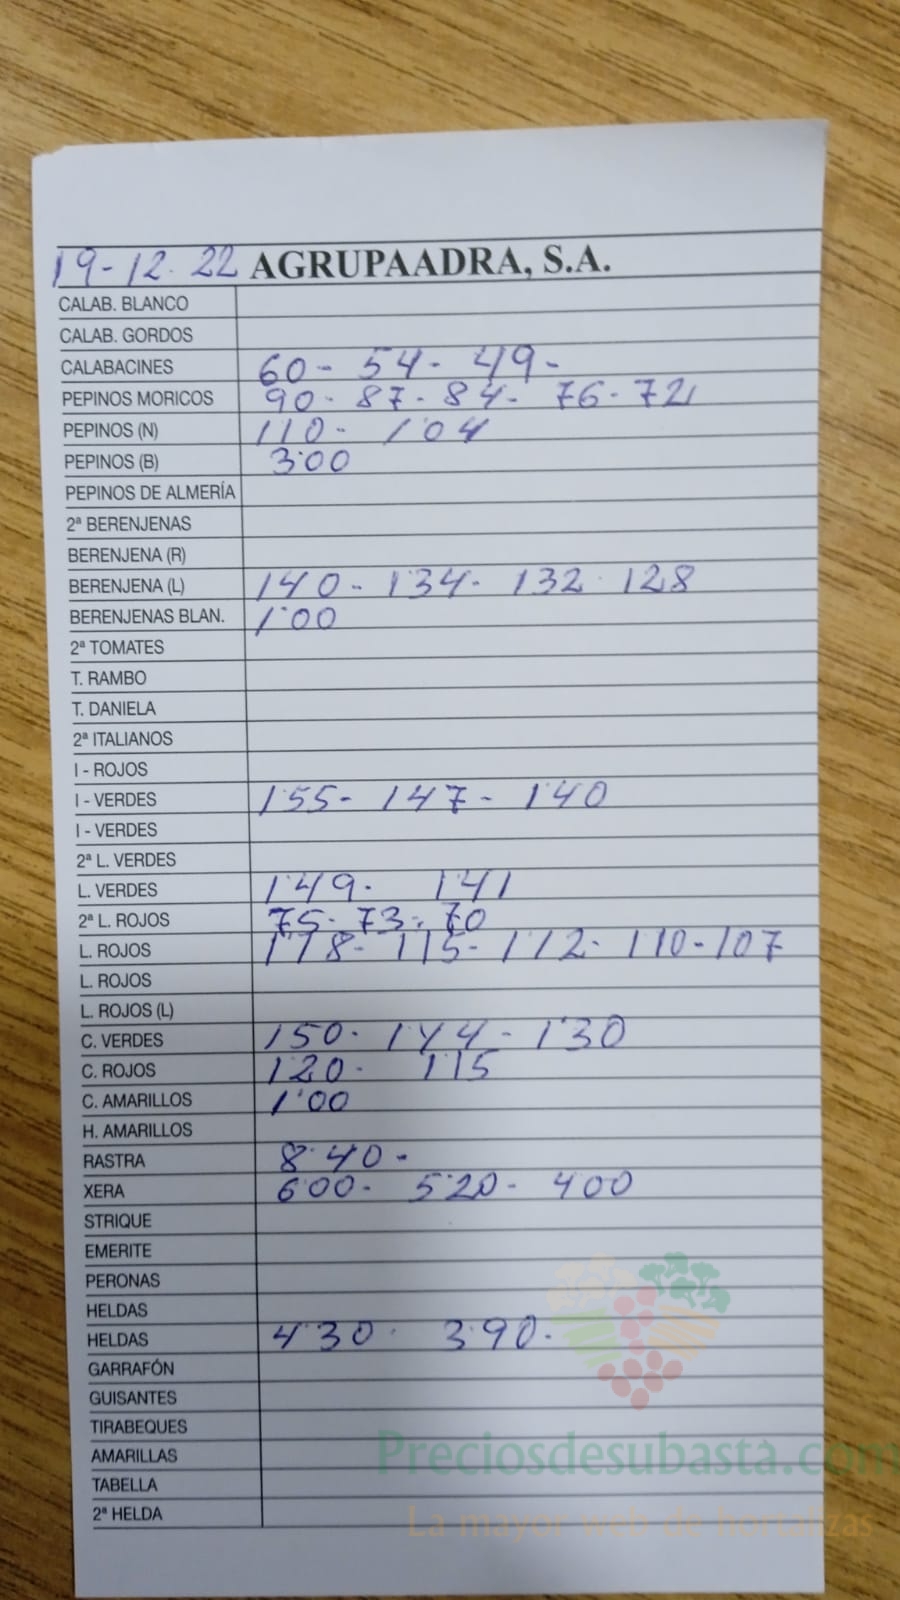 19-12.22 AGRUPAADRA, S.A.
CALAB. BLANCO
CALAB. GORDOS
CALABACINES 60- 54- 49-
PEPINOS MORICOS 90- 87- 84- 76- 72
PEPINOS (N) 110- 1'04
PEPINOS (B) 3'00
PEPINOS DE ALMERÍA
2ª BERENJENAS
BERENJENA (R)
BERENJENA (L) 1'40- 1'34- 132 128
BERENJENAS BLAN. 1'00
2ª TOMATES
T. RAMBO
T. DANIELA
2ª ITALIANOS
I - ROJOS
I - VERDES 1'55- 147- 1'40
I - VERDES
2ª L. VERDES
L. VERDES 1'49- 1'41
2ª L. ROJOS 75- 73- 70
L. ROJOS 1'18- 1'15- 1'12- 110-107
L. ROJOS
L. ROJOS (L)
C. VERDES 150- 144- 1'30
C. ROJOS 120- 115
C. AMARILLOS 1'00
H. AMARILLOS
RASTRA 8'40-
XERA 6'00- 5'20- 400
STRIQUE
EMERITE
PERONAS
HELDAS
HELDAS 4'30- 3'90-
GARRAFÓN
GUISANTES
TIRABEQUES
AMARILLAS
TABELLA
2ª HELDA
Preciosdesubasta.com
La mayor web de hortalizas